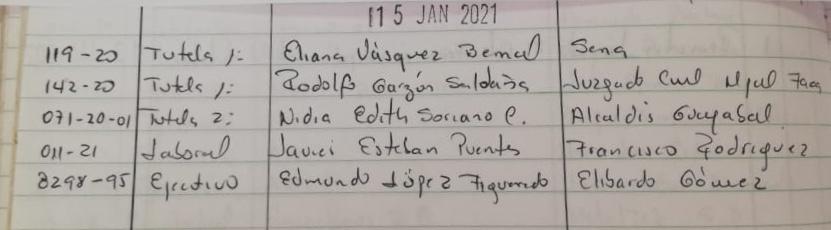 15 JAN 2021
119-20 Tutela 1: Eliana Vásquez Bernal Sena
142-20 Tutela 1: Rodolfo Garzón Saldaña Juzgado Civil Mpal
071-20-01 Tutela 2: Nidia Edith Soriano C. Alcaldia Guayabal
011-21 Laboral Javier Esteban Puentes Francisco Rodriguez
8298-95 Ejecutivo Edmundo López Figueredo Elibardo Gómez